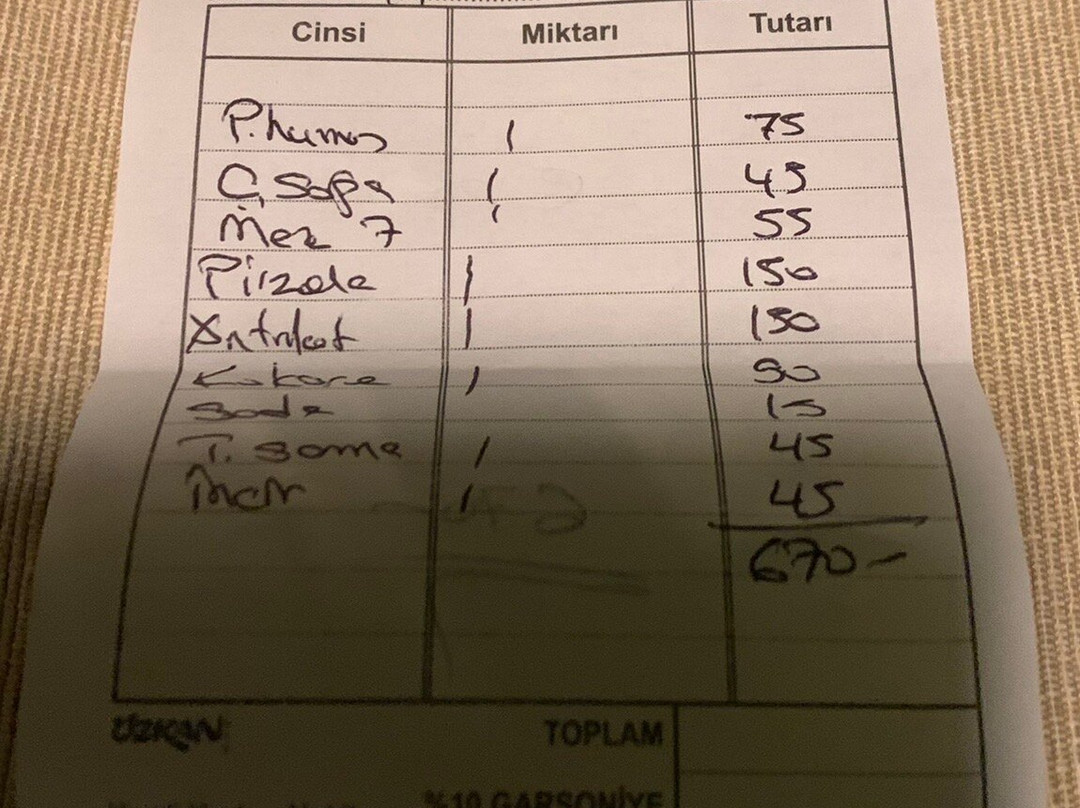 Cinsi Miktarı Tutarı
P. humus 1 75
Ç. Sopa 1 45
Mez 7 1 55
Pirzola 1 150
Antrikot 1 150
Kokore 1 90
Soda 15
T. soma 1 45
İncir 1 45
670-
ÖZKAN TOPLAM
%10 GARSONİYE